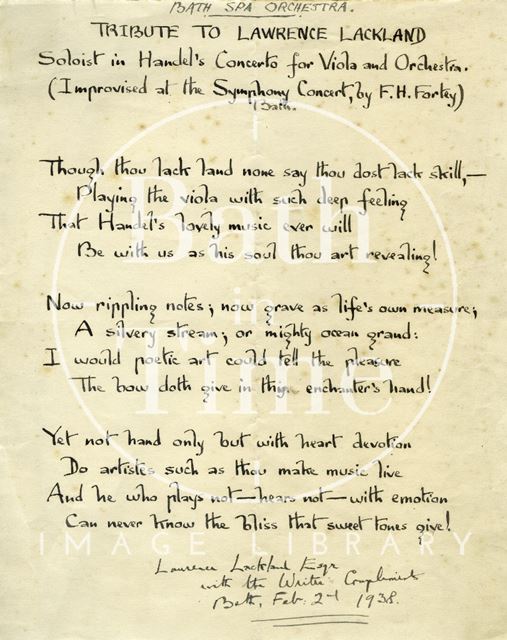 BATH SPA ORCHESTRA.
TRIBUTE TO LAWRENCE LACKLAND
Soloist in Handel's Concerto for Viola and Orchestra.
(Improvised at the Symphony Concert, by F.H. Fortey)
Bath.
Though thou lack land none say thou dost lack skill,—
Playing the viola with such deep feeling
That Handel's lovely music ever will
Be with us as his soul thou art revealing!
Now rippling notes; now grave as life's own measure;
A silvery stream; or mighty ocean grand:
I would poetic art could tell the pleasure
The bow doth give in thy enchanter's hand!
Yet not hand only but with heart devotion
Do artistes such as thou make music live
And he who plays not—hears not—with emotion
Can never know the bliss that sweet tones give!
Lawrence Lackland Esqr
with the Writer Compliments
Bath, Feb: 2nd 1938.
Bath
in
Time
IMAGE LIBRARY